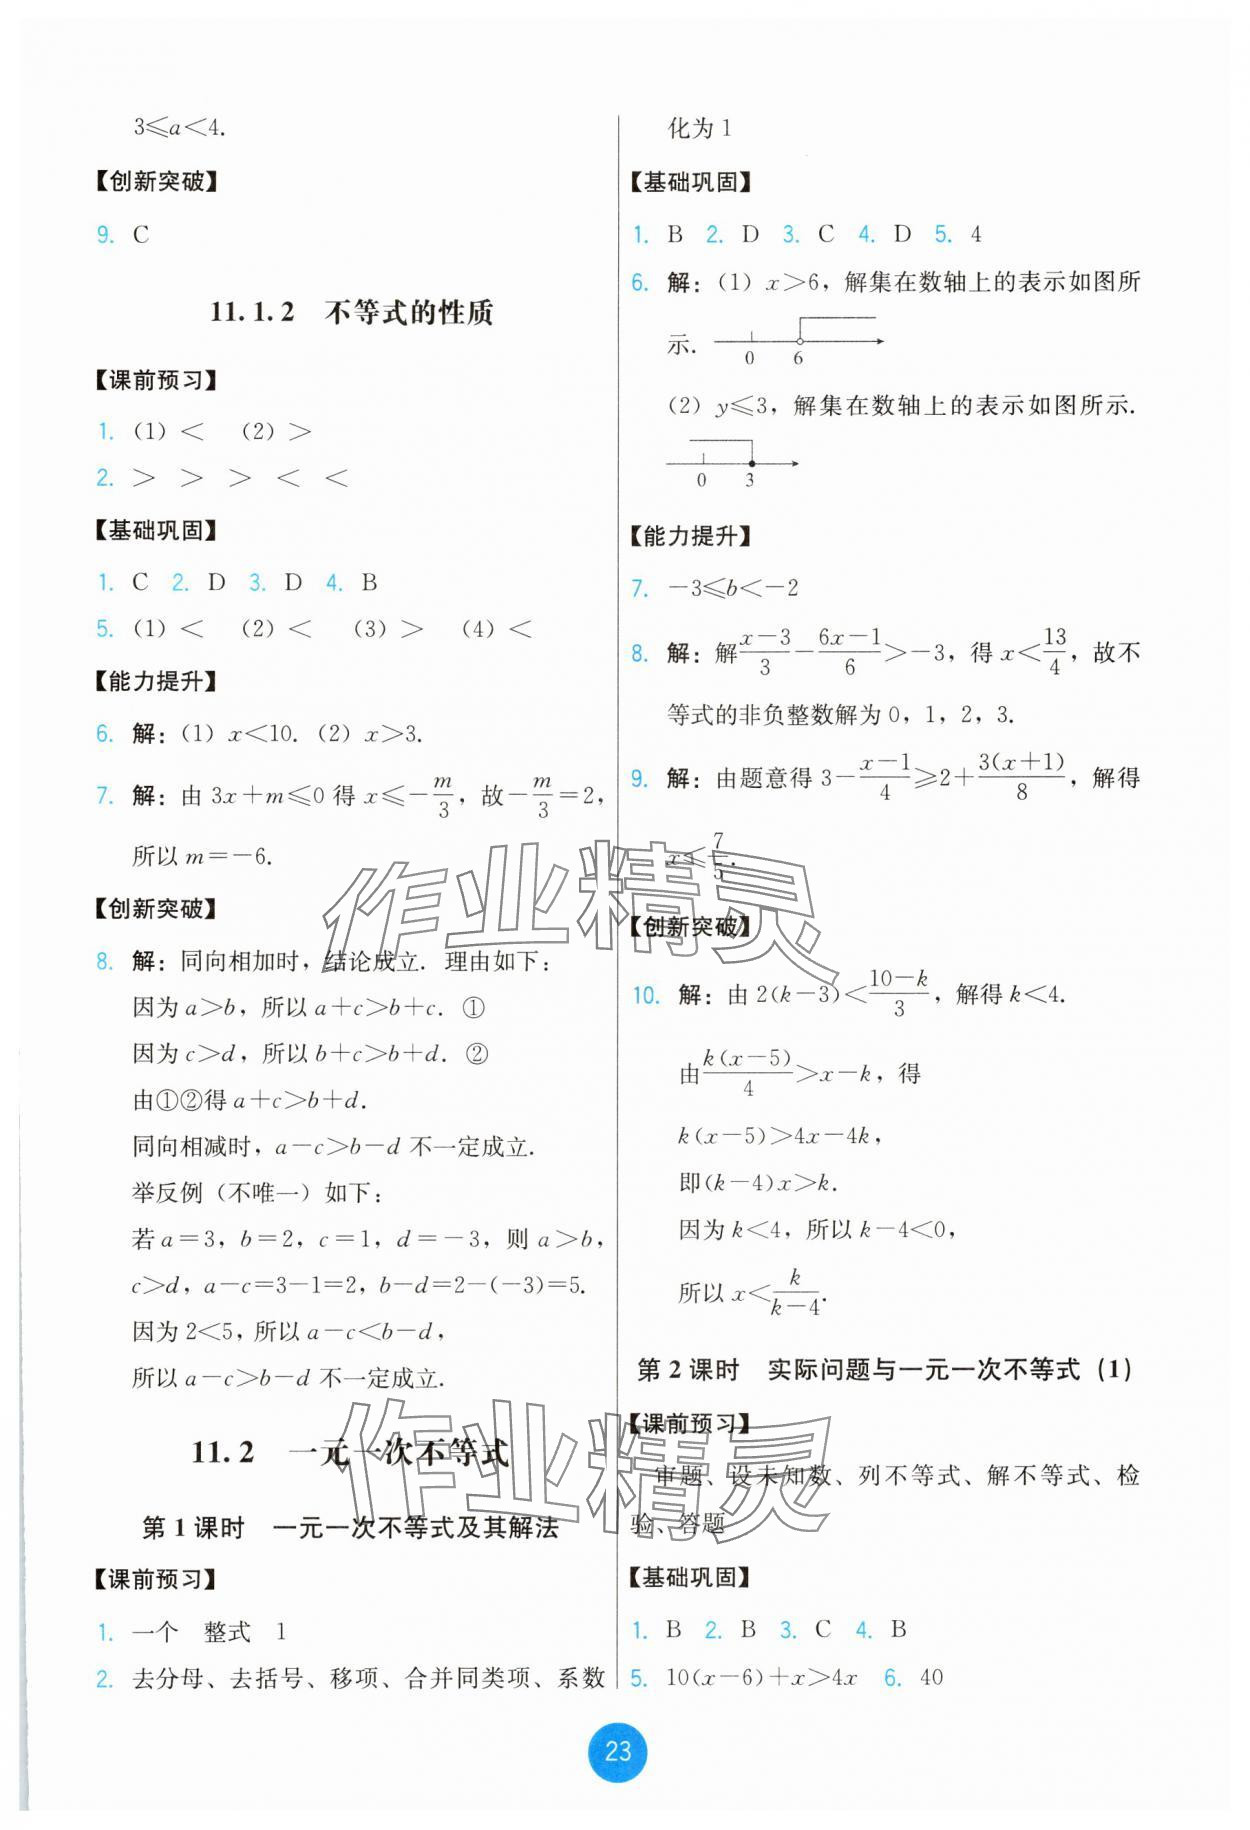 3≤a<4.
【创新突破】
9. C
11.1.2 不等式的性质
【课前预习】
1. (1) < (2) >
2. > > > < <
【基础巩固】
1. C 2. D 3. D 4. B
5. (1) < (2) < (3) > (4) <
【能力提升】
6. 解:(1) x<10. (2) x>3.
7. 解:由 3x+m≤0 得 x≤-m/3,故-m/3=2,
所以 m=-6.
【创新突破】
8. 解:同向相加时,结论成立. 理由如下:
因为 a>b,所以 a+c>b+c. ①
因为 c>d,所以 b+c>b+d. ②
由①②得 a+c>b+d.
同向相减时,a-c>b-d 不一定成立.
举反例(不唯一)如下:
若 a=3,b=2,c=1,d=-3,则 a>b,
c>d,a-c=3-1=2,b-d=2-(-3)=5.
因为 2<5,所以 a-c<b-d,
所以 a-c>b-d 不一定成立.
11.2 一元一次不等式
第 1 课时 一元一次不等式及其解法
【课前预习】
1. 一个 整式 1
2. 去分母、去括号、移项、合并同类项、系数
化为 1
【基础巩固】
1. B 2. D 3. C 4. D 5. 4
6. 解:(1) x>6,解集在数轴上的表示如图所
示.
0 6
(2) y≤3,解集在数轴上的表示如图所示.
0 3
【能力提升】
7. -3≤b<-2
8. 解:解(x-3)/3-(6x-1)/6>-3,得 x<13/4,故不
等式的非负整数解为 0,1,2,3.
9. 解:由题意得 3-(x-1)/4≥2+3(x+1)/8,解得
x≤7/5.
【创新突破】
10. 解:由 2(k-3)<(10-k)/3,解得 k<4.
由k(x-5)/4>x-k,得
k(x-5)>4x-4k,
即(k-4)x>k.
因为 k<4,所以 k-4<0,
所以 x<k/(k-4).
第 2 课时 实际问题与一元一次不等式 (1)
【课前预习】
审题、设未知数、列不等式、解不等式、检
验、答题
【基础巩固】
1. B 2. B 3. C 4. B
5. 10(x-6)+x>4x 6. 40
23
作业精灵
作业精灵